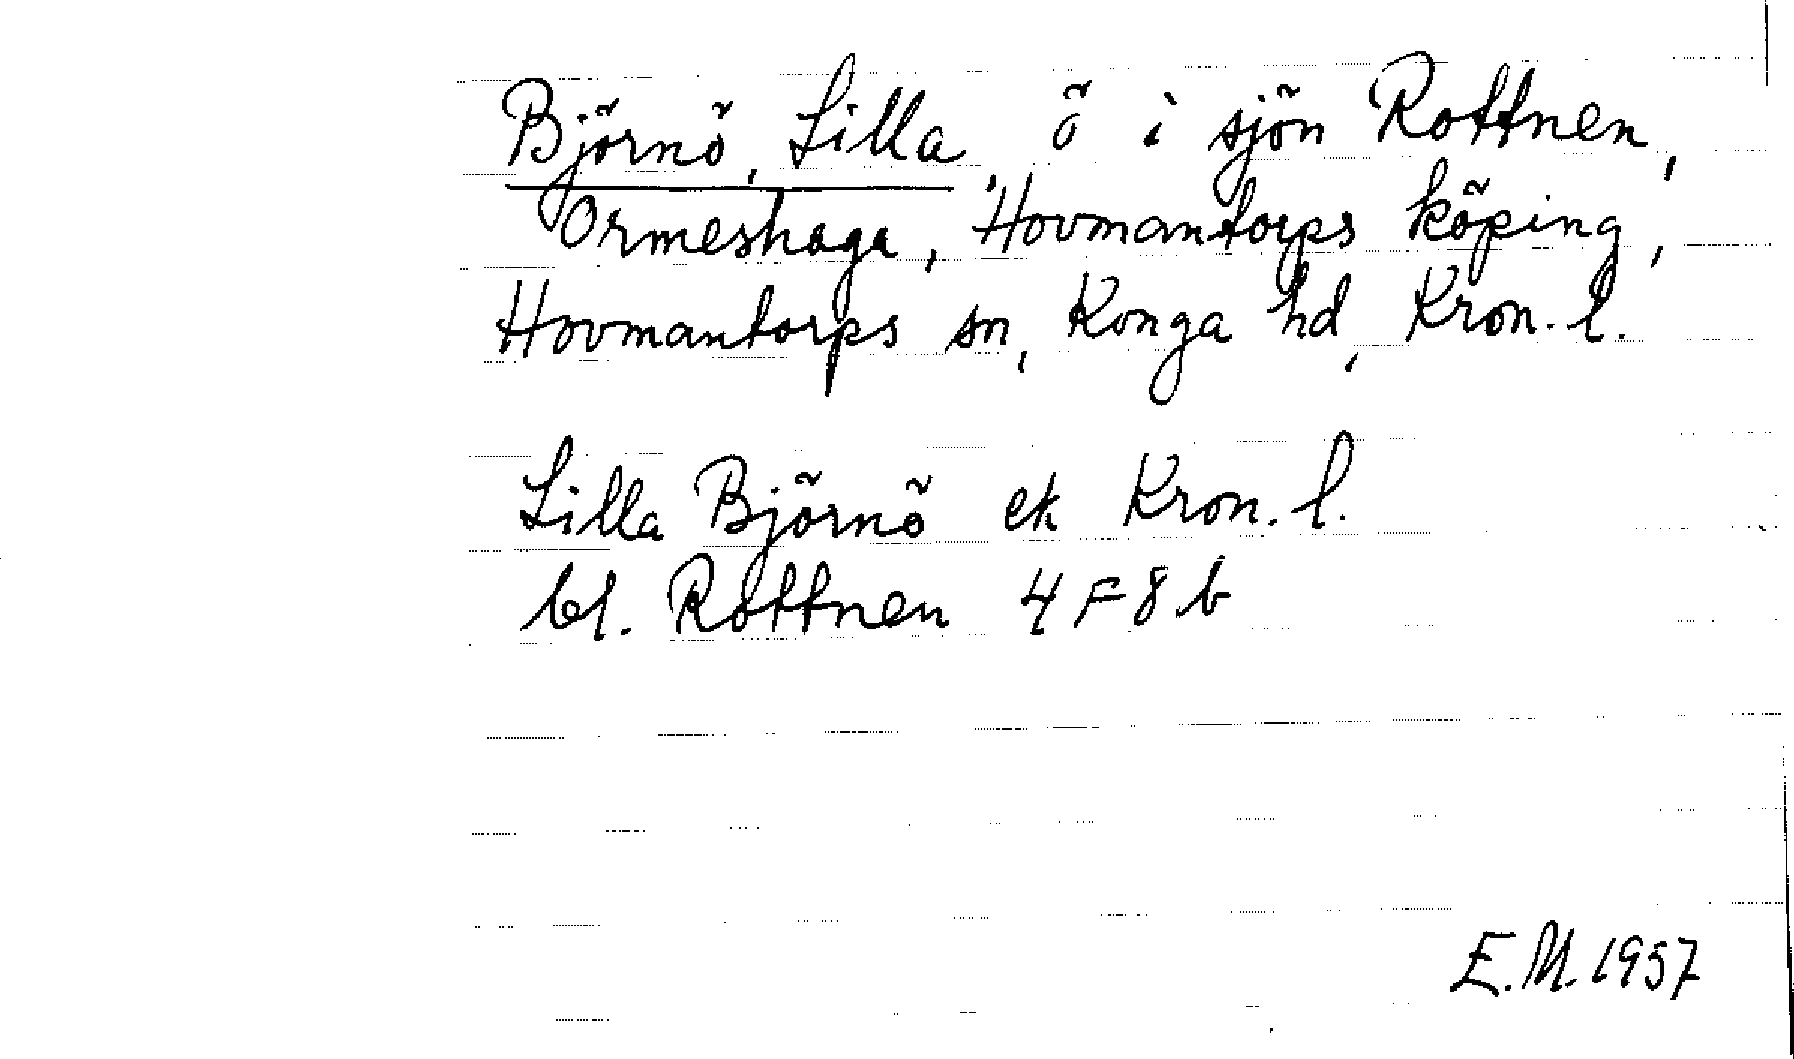 Björnö, Lilla, ö i sjön Rottnen,
Ormeshaga, Hovmantorps köping,
Hovmantorps sn, Konga hd, Kron. l.
Lilla Björnö ek Kron. l.
bl. Rottnen 4 F 8 b
E.M. 1957